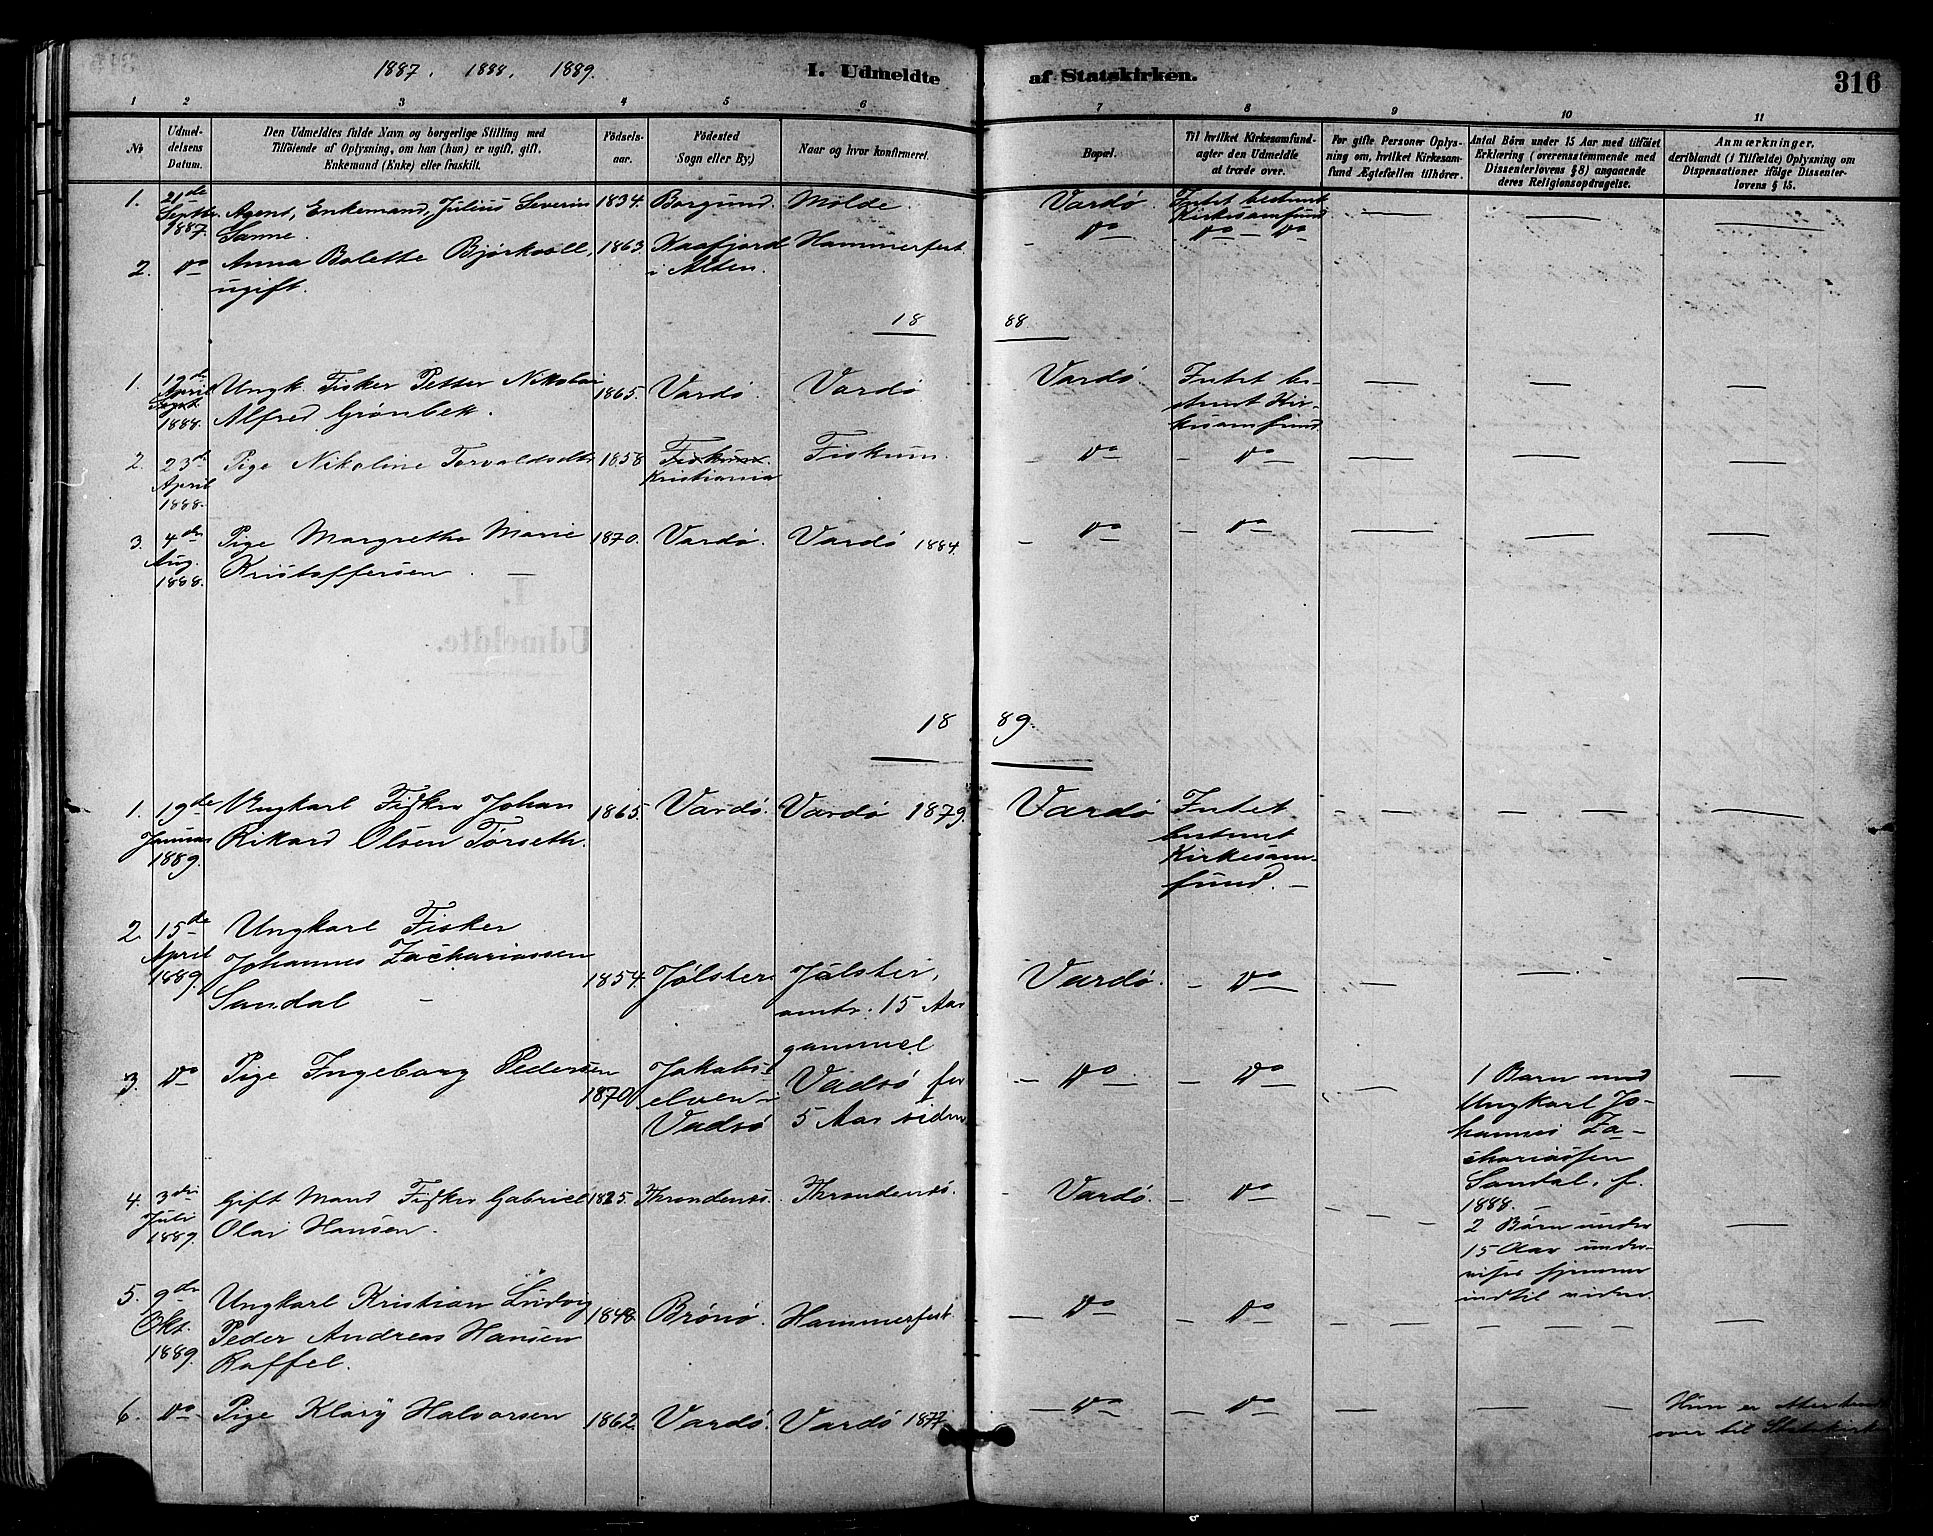 1887. 1888. 1889.
I. Udmeldte af Statskirken.
316
1 2 3 4 5 6 7 8 9 10 11
No
Udmel-
delsens
Datum.
Den Udmeldtes fulde Navn og borgerlige Stilling med
Tilføiende af Oplysning, om han (hun) er ugift, gift,
Enkemand (Enke) eller fraskilt.
Fødsels-
aar.
Fødested
(Sogn eller By.)
Naar og hvor konfirmeret.
Bopæl.
Til hvilket Kirkesamfund
agter den Udmeldte
at træde over.
For gifte Personer Oplys-
ning om, hvilket Kirkesam-
fund Ægtefællen tilhører.
Antal Børn under 15 Aar med tilføiet
Erklæring (overensstemmende med
Dissenterlovens § 8) angaaende
deres Religionsopdragelse.
Anmærkninger,
deriblandt (i Tilfælde) Oplysning om
Dispensationer ifølge Dissenter-
lovens § 15.
1. 21de Septbr. 1887. Agent, Enkemand, Julius Severin 1834. Borgund. Molde. Vardø. Intet bestemt
Sanne. Kirkesamfund
2. Do Anna Bolette Bjørkvoll, 1863. Kaafjord Hammerfest. Do Do Do
ugift. i Alten.
1888.
1. 19de April 1888. Ungk. Fisker Petter Nikolai 1865. Vardø. Vardø Vardø. Intet be-
Alfred Grønbek. stemt Kir-
kesamfund.
2. 23de April 1888. Pige Nikoline Torvaldsdtr. 1858 Fiskum. Fiskum. Do Do
Kristiania
3. 4de Aug. 1888. Pige Margrethe Marie 1870. Vardø. Vardø 1884. Do Do
Kristoffersen.
I.
Udmeldte.
1889.
1. 19de Januar 1889. Ungkarl Fisker Johan 1865. Vardø. Vardø 1879. Vardø Intet
Rikard Olsen Torseth. bestemt
Kirkesam-
fund.
2. 15de April 1889. Ungkarl Fisker
Johannes Zachariassen
Sandal 1854. Jølster Jølster, Vardø. Do
omtr. 15 Aar
gammel
3. Do Pige Ingeborg Pedersen 1870 Jakobs- Vadsø for Do Do 1 Barn med
elven Vadsø 5 Aar siden Ungkarl Jo-
hannes Za-
chariassen
Sandal, f.
1888.
4. 3die Juli 1889. Gift Mand Fisker Gabriel 1825. Throndenæs. Throndenæs. Vardø. Do 2 Børn under
Olai Hansen. 15 Aar under-
vises hjemme
indtil videre.
5. 9de Okt. 1889. Ungkarl Kristian Ludvig 1848. Brønø. Hammerfest. Do Do
Peder Andreas Hansen
Roffel.
6. Do Pige Klary Halvorsen 1862. Vardø. Vardø 1877. Do Do Hun er
over til Statskirk